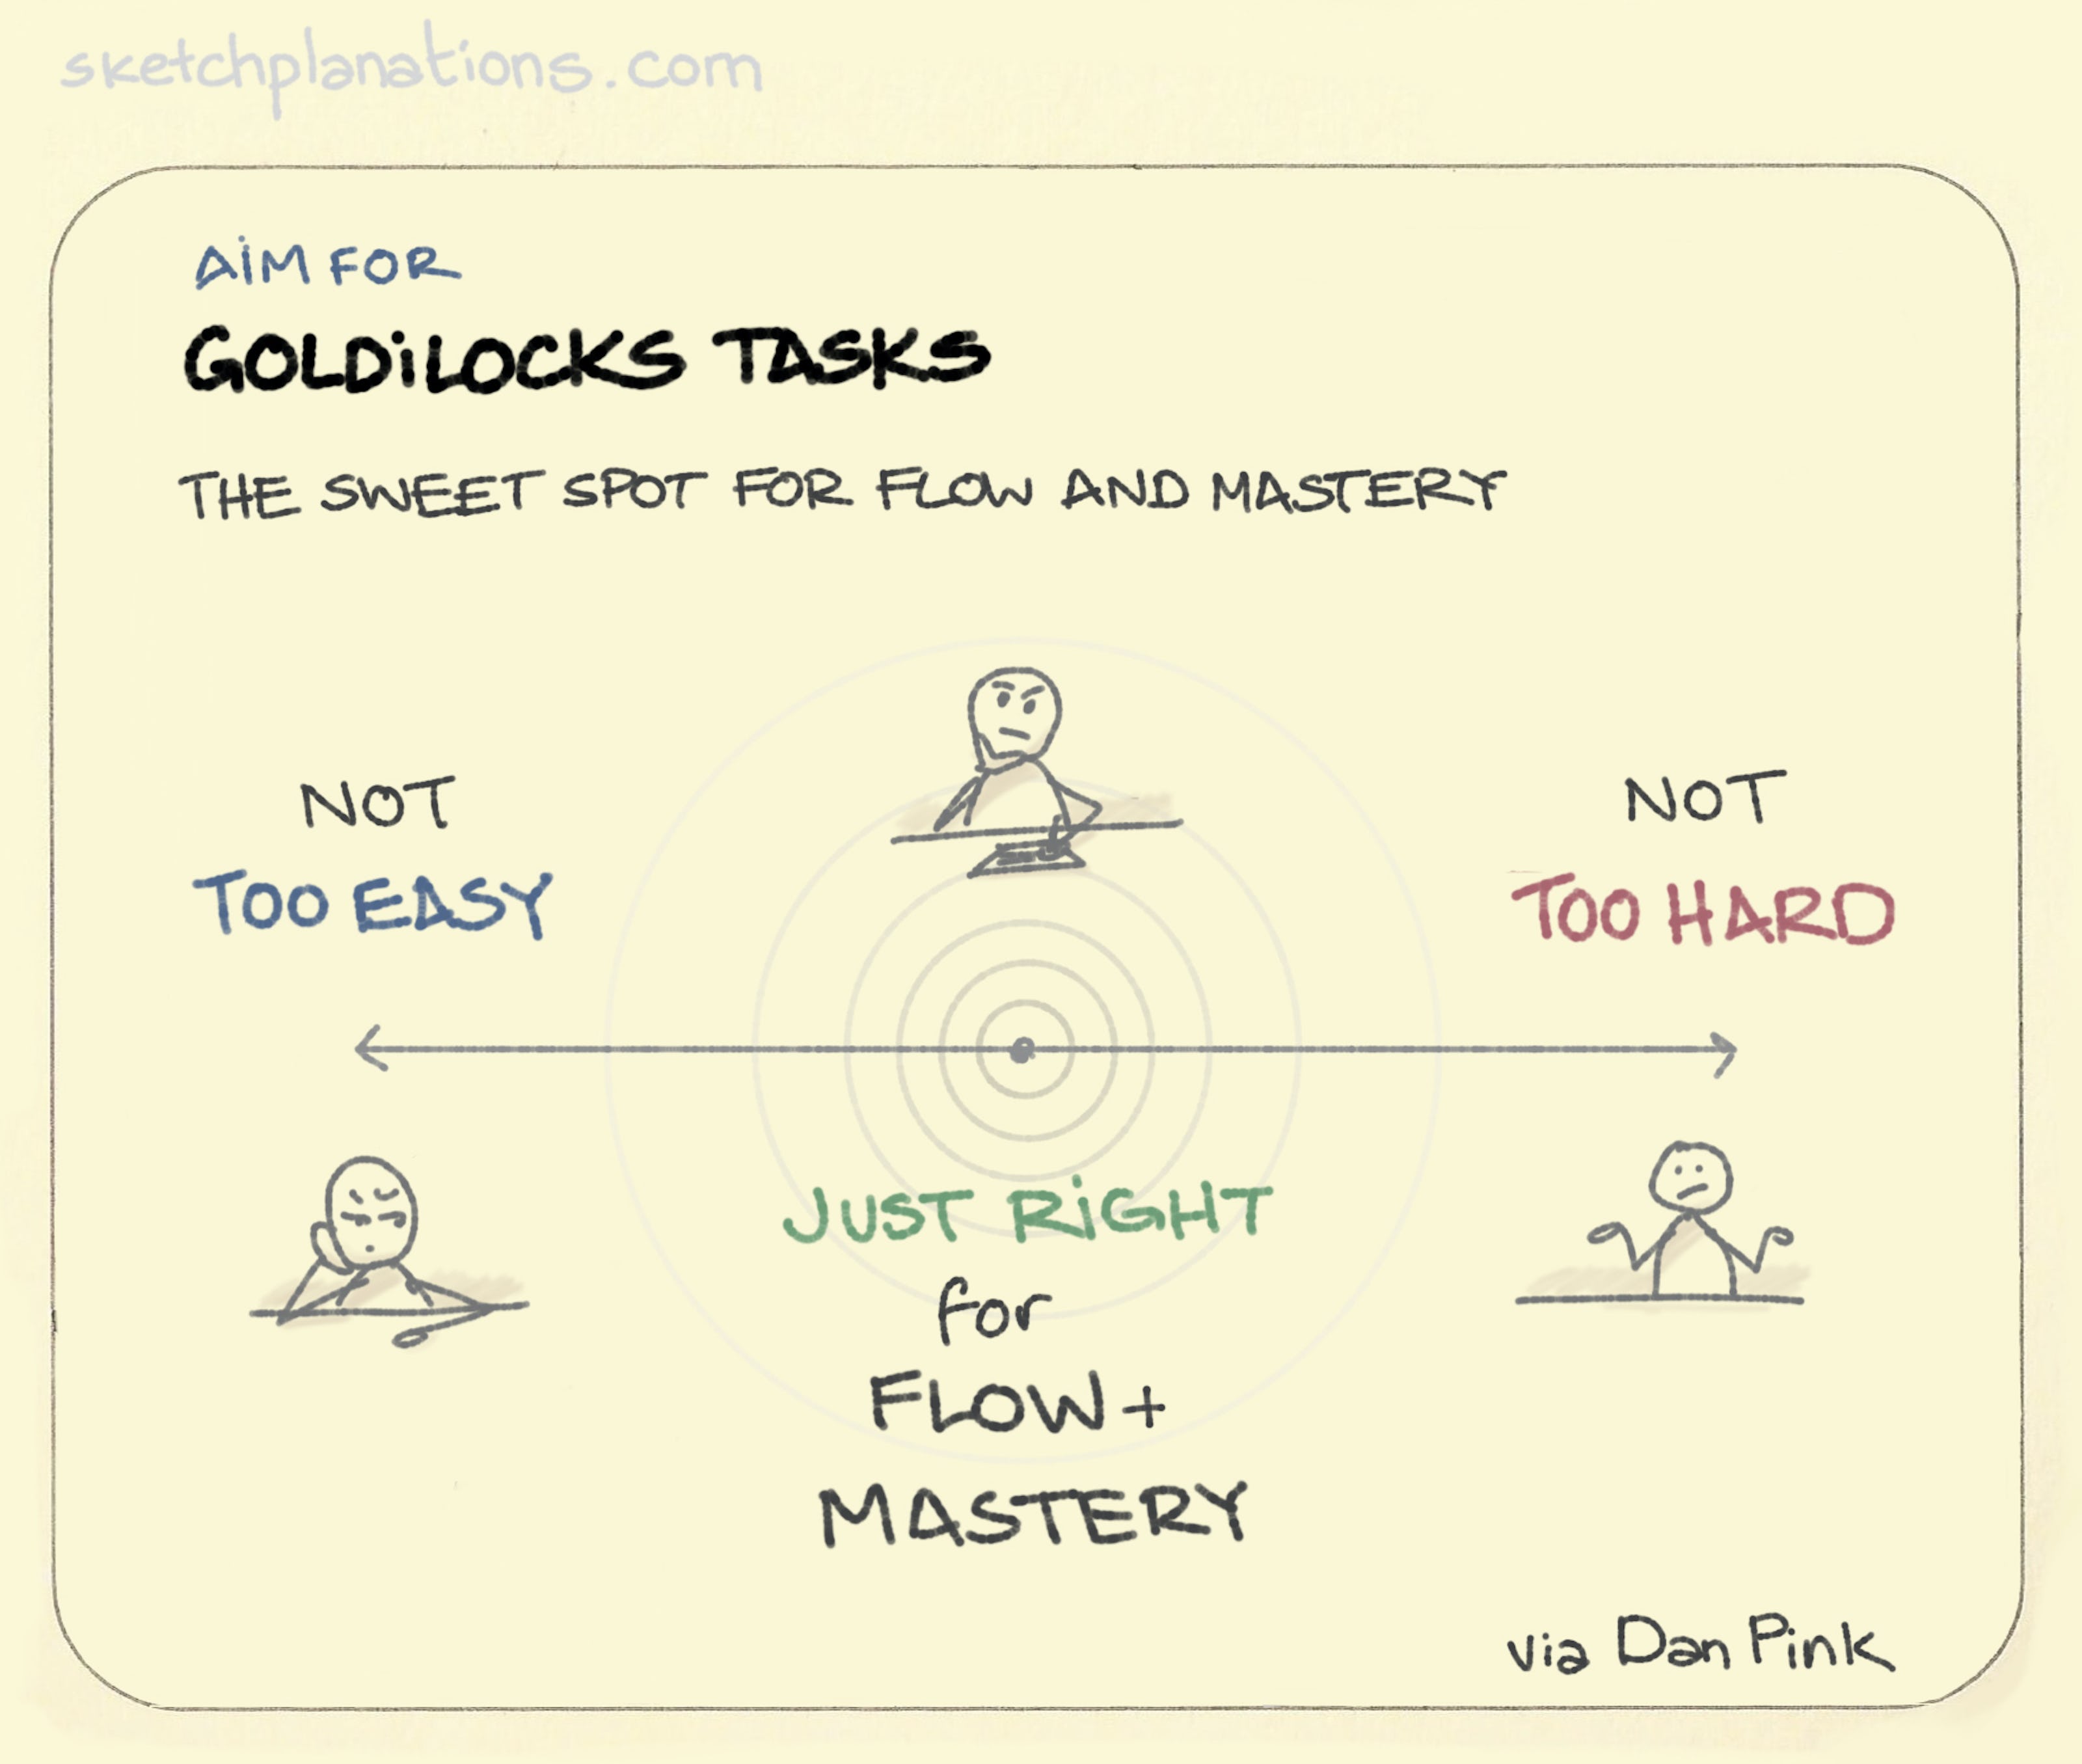 sketchplanations.com
AiM FOR
GOLDiLOCKS TASKS
THE SWEET SPOT FOR FLOW AND MASTERY
NOT
TOO EASY
NOT
TOO HARD
JUST RiGHT
for
FLOW +
MASTERY
via Dan Pink